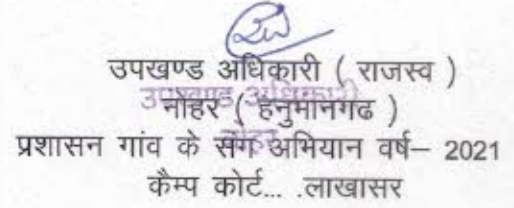 उपखण्ड अधिकारी ( राजस्व )
नोहर ( हनुमानगढ )
प्रशासन गांव के संग अभियान वर्ष– 2021
कैम्प कोर्ट... .लाखासर